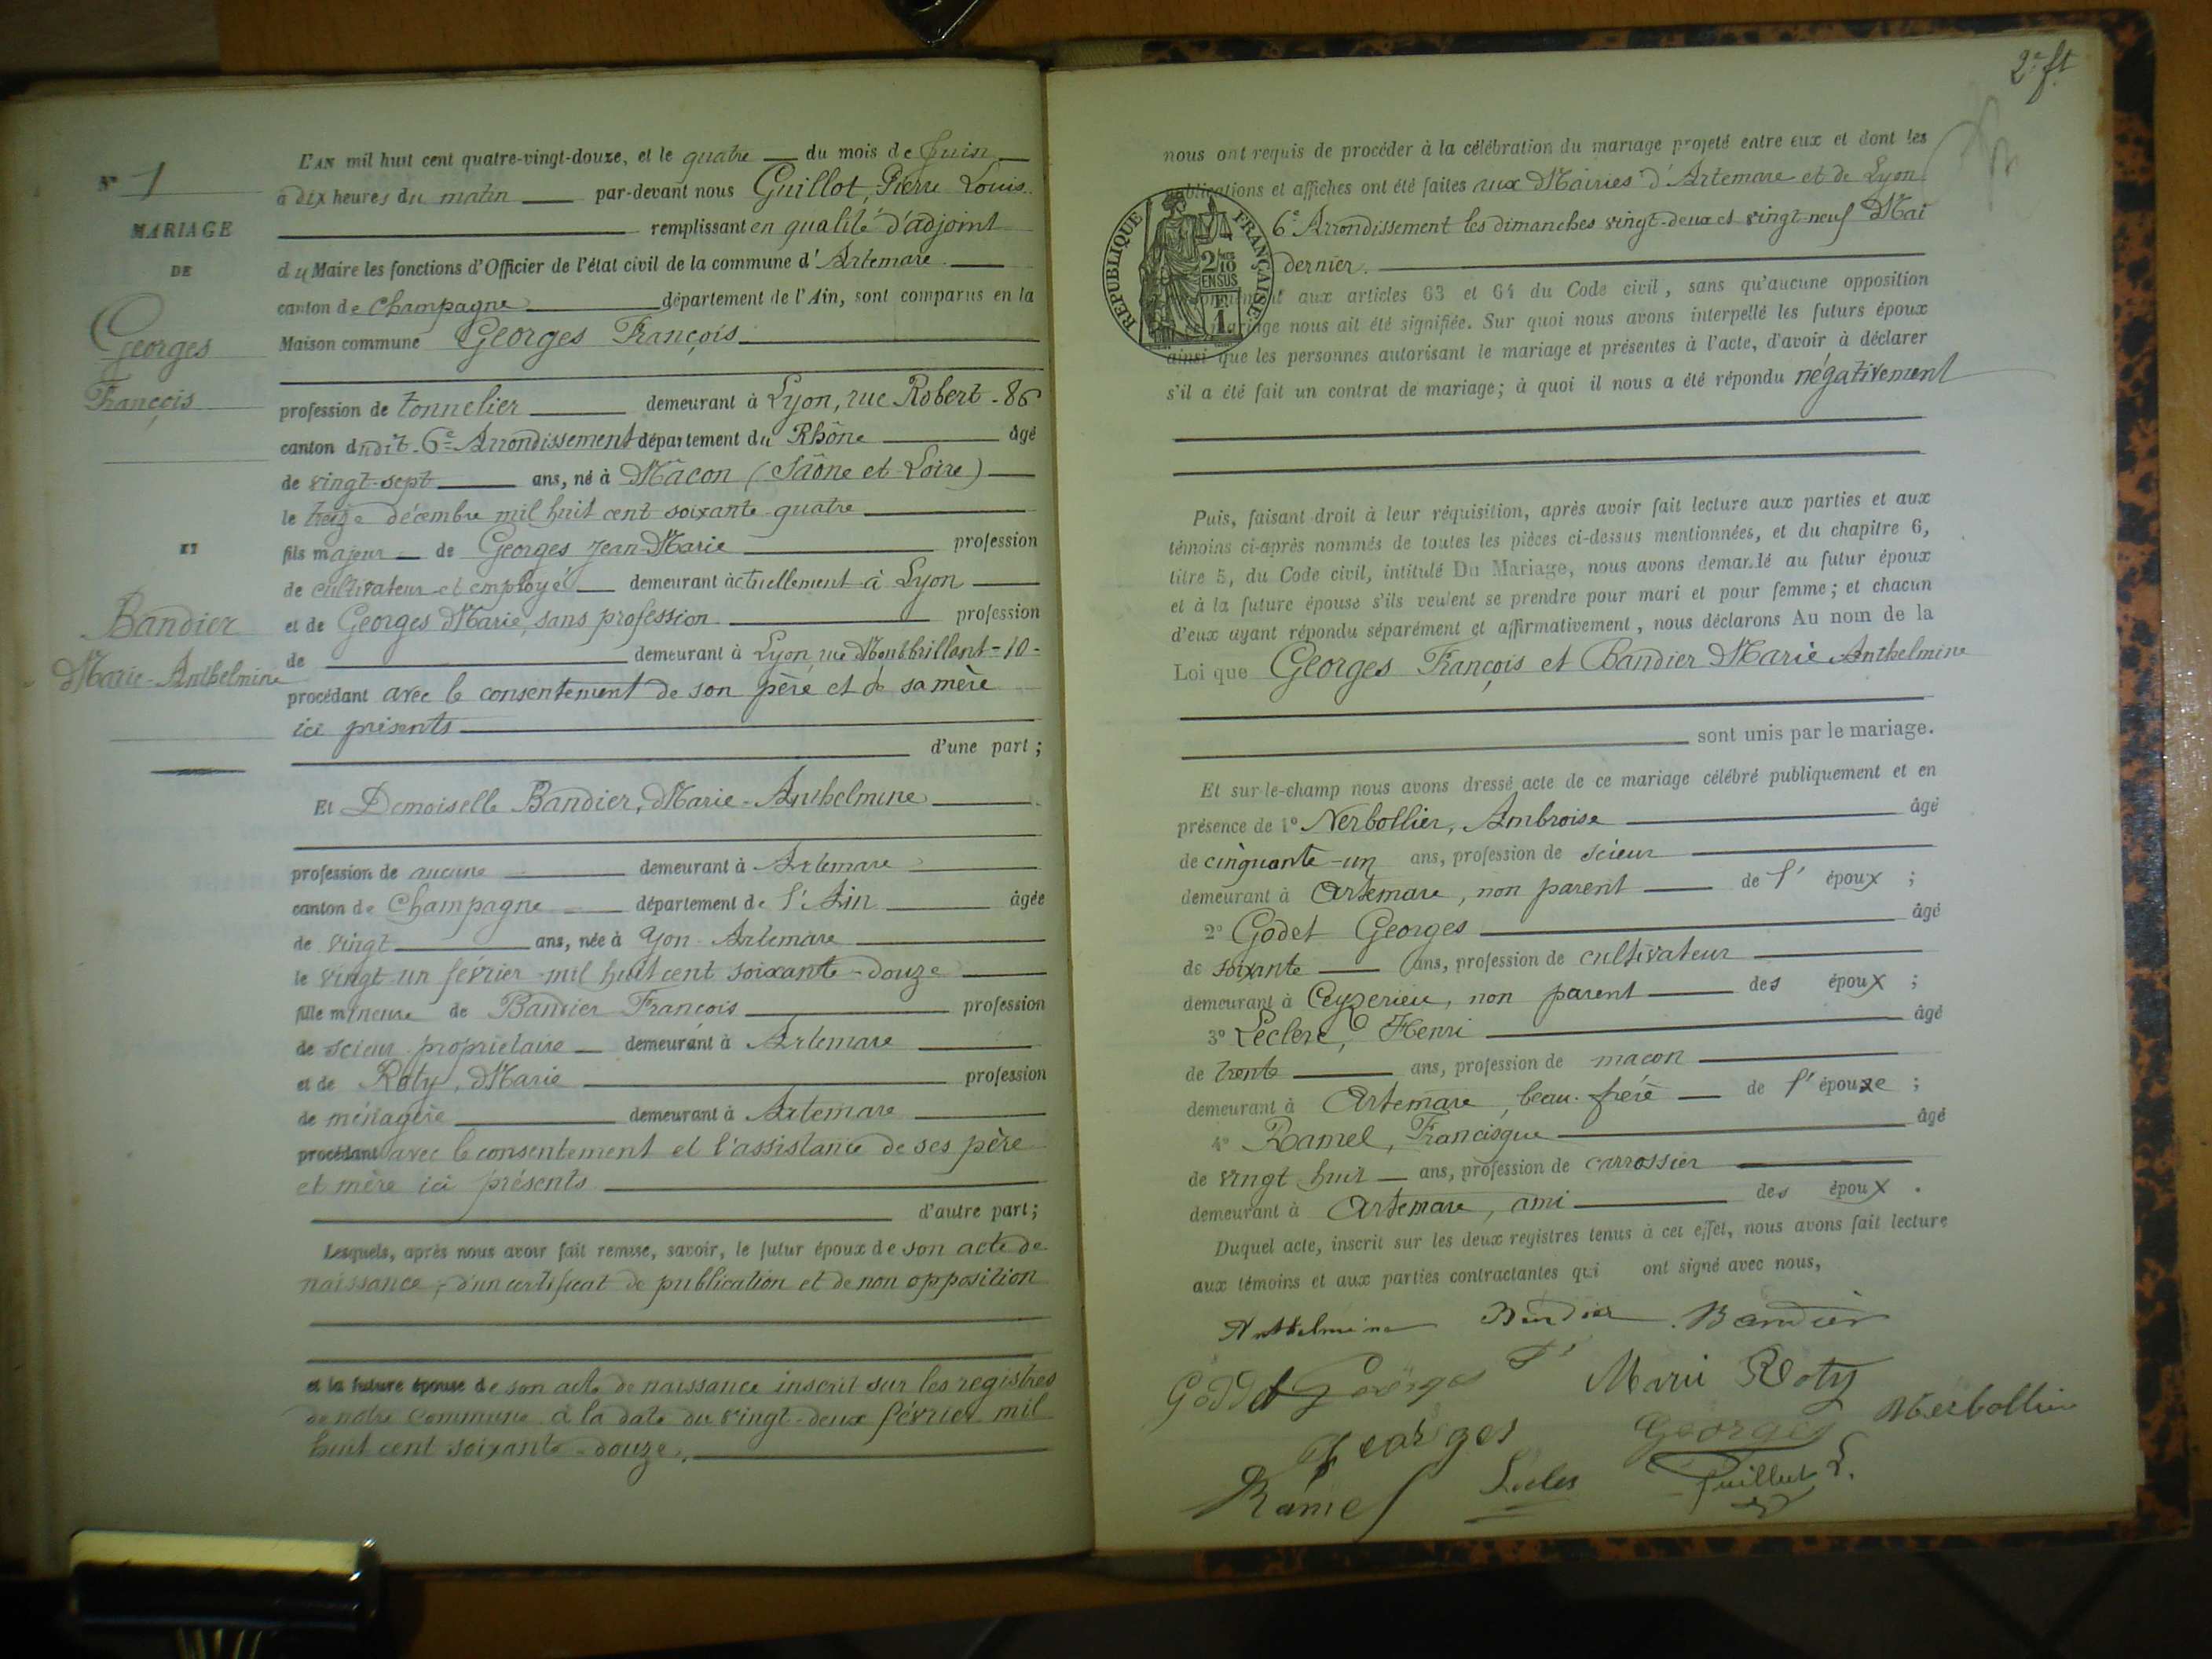 N° 1
MARIAGE
DE
Georges
François
ET
Bandier
Marie-Anthelmine
L'AN mil huit cent quatre-vingt-douze, et le quatre du mois de Juin
à dix heures du matin par-devant nous Guillot, Pierre Louis
remplissant en qualité d'adjoint
du Maire les fonctions d'Officier de l'état civil de la commune d'Artemare
canton de Champagne département de l'Ain, sont comparus en la
Maison commune Georges François
profession de tonnelier demeurant à Lyon, rue Robert - 86
canton dudit. 6e Arrondissement département du Rhône âgé
de vingt-sept ans, né à Mâcon (Saône et Loire)
le treize décembre mil huit cent soixante-quatre
fils majeur de Georges Jean-Marie profession
de cultivateur et employé demeurant actuellement à Lyon
et de Georges Marie, sans profession profession
de demeurant à Lyon, rue Montbrillant - 10 -
procédant avec le consentement de son père et de sa mère
ici présents
d'une part ;
Et Demoiselle Bandier, Marie-Anthelmine
profession de aucune demeurant à Artemare
canton de Champagne département de l'Ain âgée
de vingt ans, née à Yon-Artemare
le vingt un février mil huit cent soixante-douze
fille mineure de Bandier François profession
de scieur propriétaire demeurant à Artemare
et de Roty, Marie profession
de ménagère demeurant à Artemare
procédant avec le consentement et l'assistance de ses père
et mère ici présents
d'autre part ;
Lesquels, après nous avoir fait remise, savoir, le futur époux de son acte de
naissance, d'un certificat de publication et de non opposition
et la future épouse de son acte de naissance inscrit sur les registres
de notre commune à la date du vingt-deux février mil
huit cent soixante-douze.
2e ft
nous ont requis de procéder à la célébration du mariage projeté entre eux et dont les
publications et affiches ont été faites aux Mairies d'Artemare et de Lyon
6e Arrondissement les dimanches vingt-deux et vingt-neuf Mai
dernier.
RÉPUBLIQUE FRANÇAISE
2/10
EN SUS
1 F
aux articles 63 et 64 du Code civil, sans qu'aucune opposition
mariage nous ait été signifiée. Sur quoi nous avons interpellé les futurs époux
ainsi que les personnes autorisant le mariage et présentes à l'acte, d'avoir à déclarer
s'il a été fait un contrat de mariage ; à quoi il nous a été répondu négativement
Puis, faisant droit à leur réquisition, après avoir fait lecture aux parties et aux
témoins ci-après nommés de toutes les pièces ci-dessus mentionnées, et du chapitre 6,
titre 5, du Code civil, intitulé Du Mariage, nous avons demandé au futur époux
et à la future épouse s'ils veulent se prendre pour mari et pour femme ; et chacun
d'eux ayant répondu séparément et affirmativement, nous déclarons Au nom de la
Loi que Georges François et Bandier Marie Anthelmine
sont unis par le mariage.
Et sur-le-champ nous avons dressé acte de ce mariage célébré publiquement et en
présence de 1° Nerbollier, Ambroise âgé
de cinquante-un ans, profession de scieur
demeurant à Artemare, non parent de l'époux ;
2° Godet Georges âgé
de soixante ans, profession de cultivateur
demeurant à Ceyzerieu, non parent des époux ;
3° Leclerc, Henri âgé
de trente ans, profession de macon
demeurant à Artemare, beau-frère de l'épouse ;
4° Ramel, Francisque âgé
de vingt huit ans, profession de carrossier
demeurant à Artemare, ami des époux.
Duquel acte, inscrit sur les deux registres tenus à cet effet, nous avons fait lecture
aux témoins et aux parties contractantes qui ont signé avec nous,
Anthelmine Bandier Bandier
Goddet Georges Marie Roty
Georges Georges Nerbollier
Ramel Guillot L.